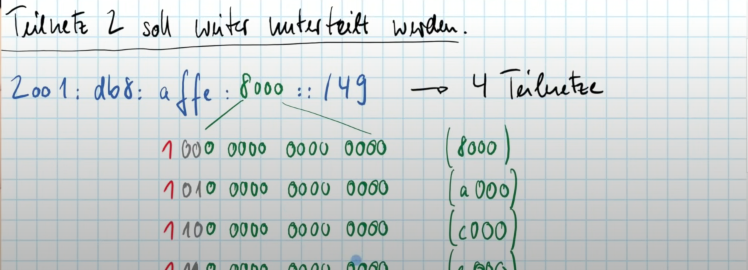 Teilnetz 2 soll weiter unterteilt werden.
2001: db8: affe : 8000 :: /49 → 4 Teilnetze
1 000 0000 0000 0000 (8000)
1 010 0000 0000 0000 (a000)
1 100 0000 0000 0000 (c000)
1 110 0000 0000 0000